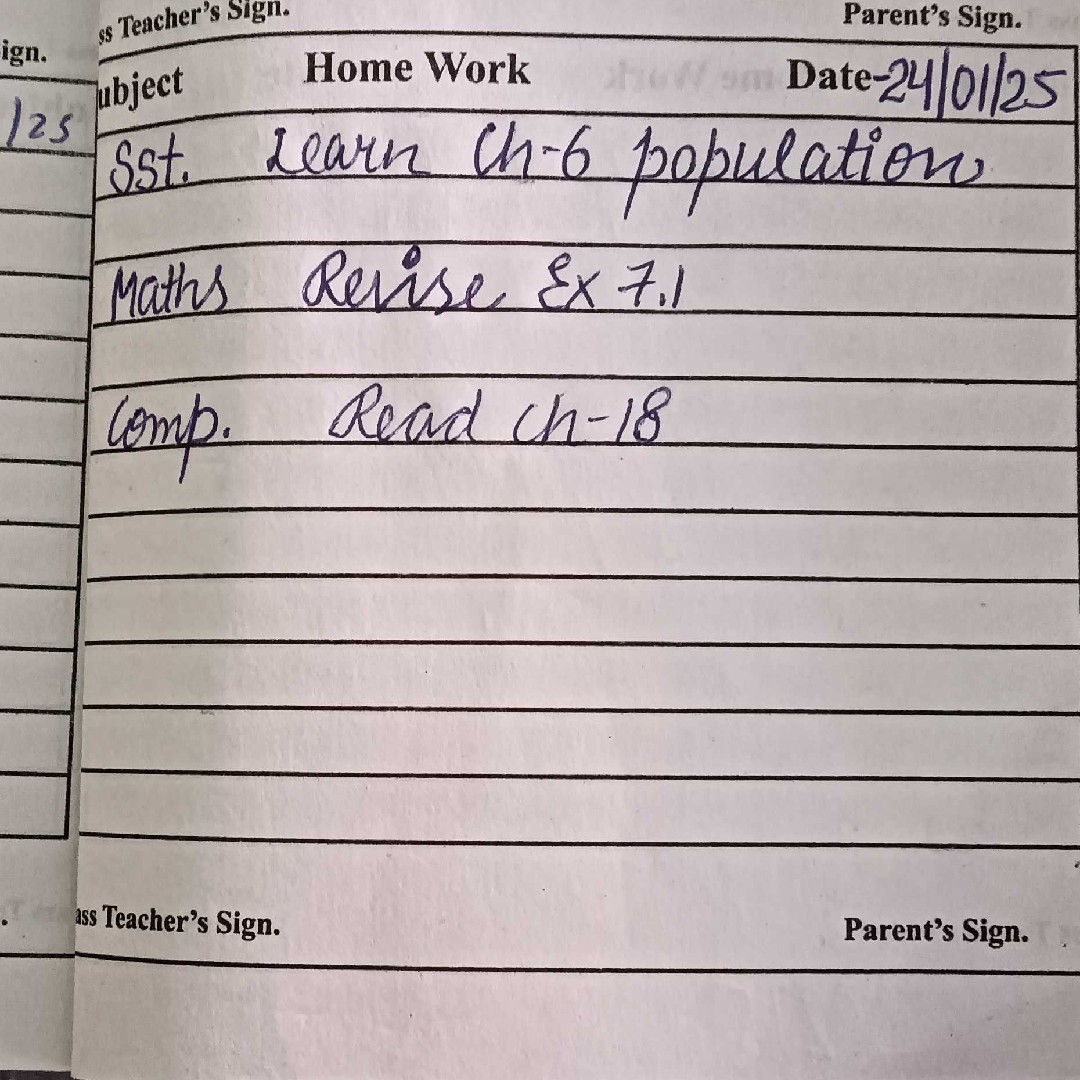 ss Teacher's Sign. Parent's Sign.
ign.
ubject Home Work Date-24/01/25
/25
Sst. Learn Ch-6 population
Maths Revise Ex 7.1
Comp. Read Ch-18
ass Teacher's Sign. Parent's Sign.